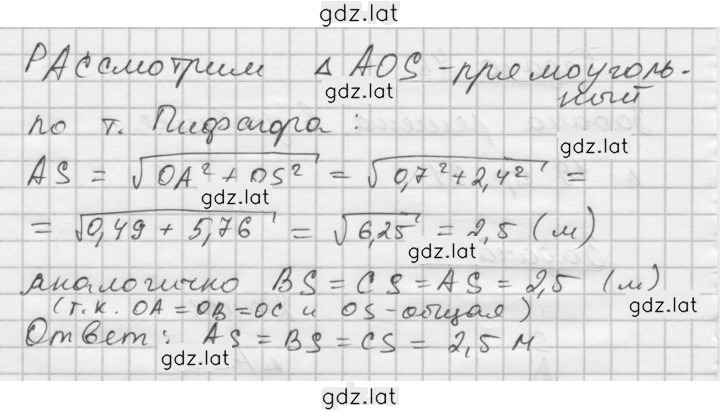 gdz.lat
Рассмотрим △ AOS - прямоуголь-
ный
gdz.lat
по т. Пифагора:
gdz.lat
AS = √OA² + OS² = √0,7² + 2,4² =
gdz.lat
= √0,49 + 5,76 = √6,25 = 2,5 (м)
gdz.lat
аналогично BS = CS = AS = 2,5 (м)
(т.к. OA = OB = OC и OS - общая)
gdz.lat
Ответ: AS = BS = CS = 2,5 м
gdz.lat
gdz.lat